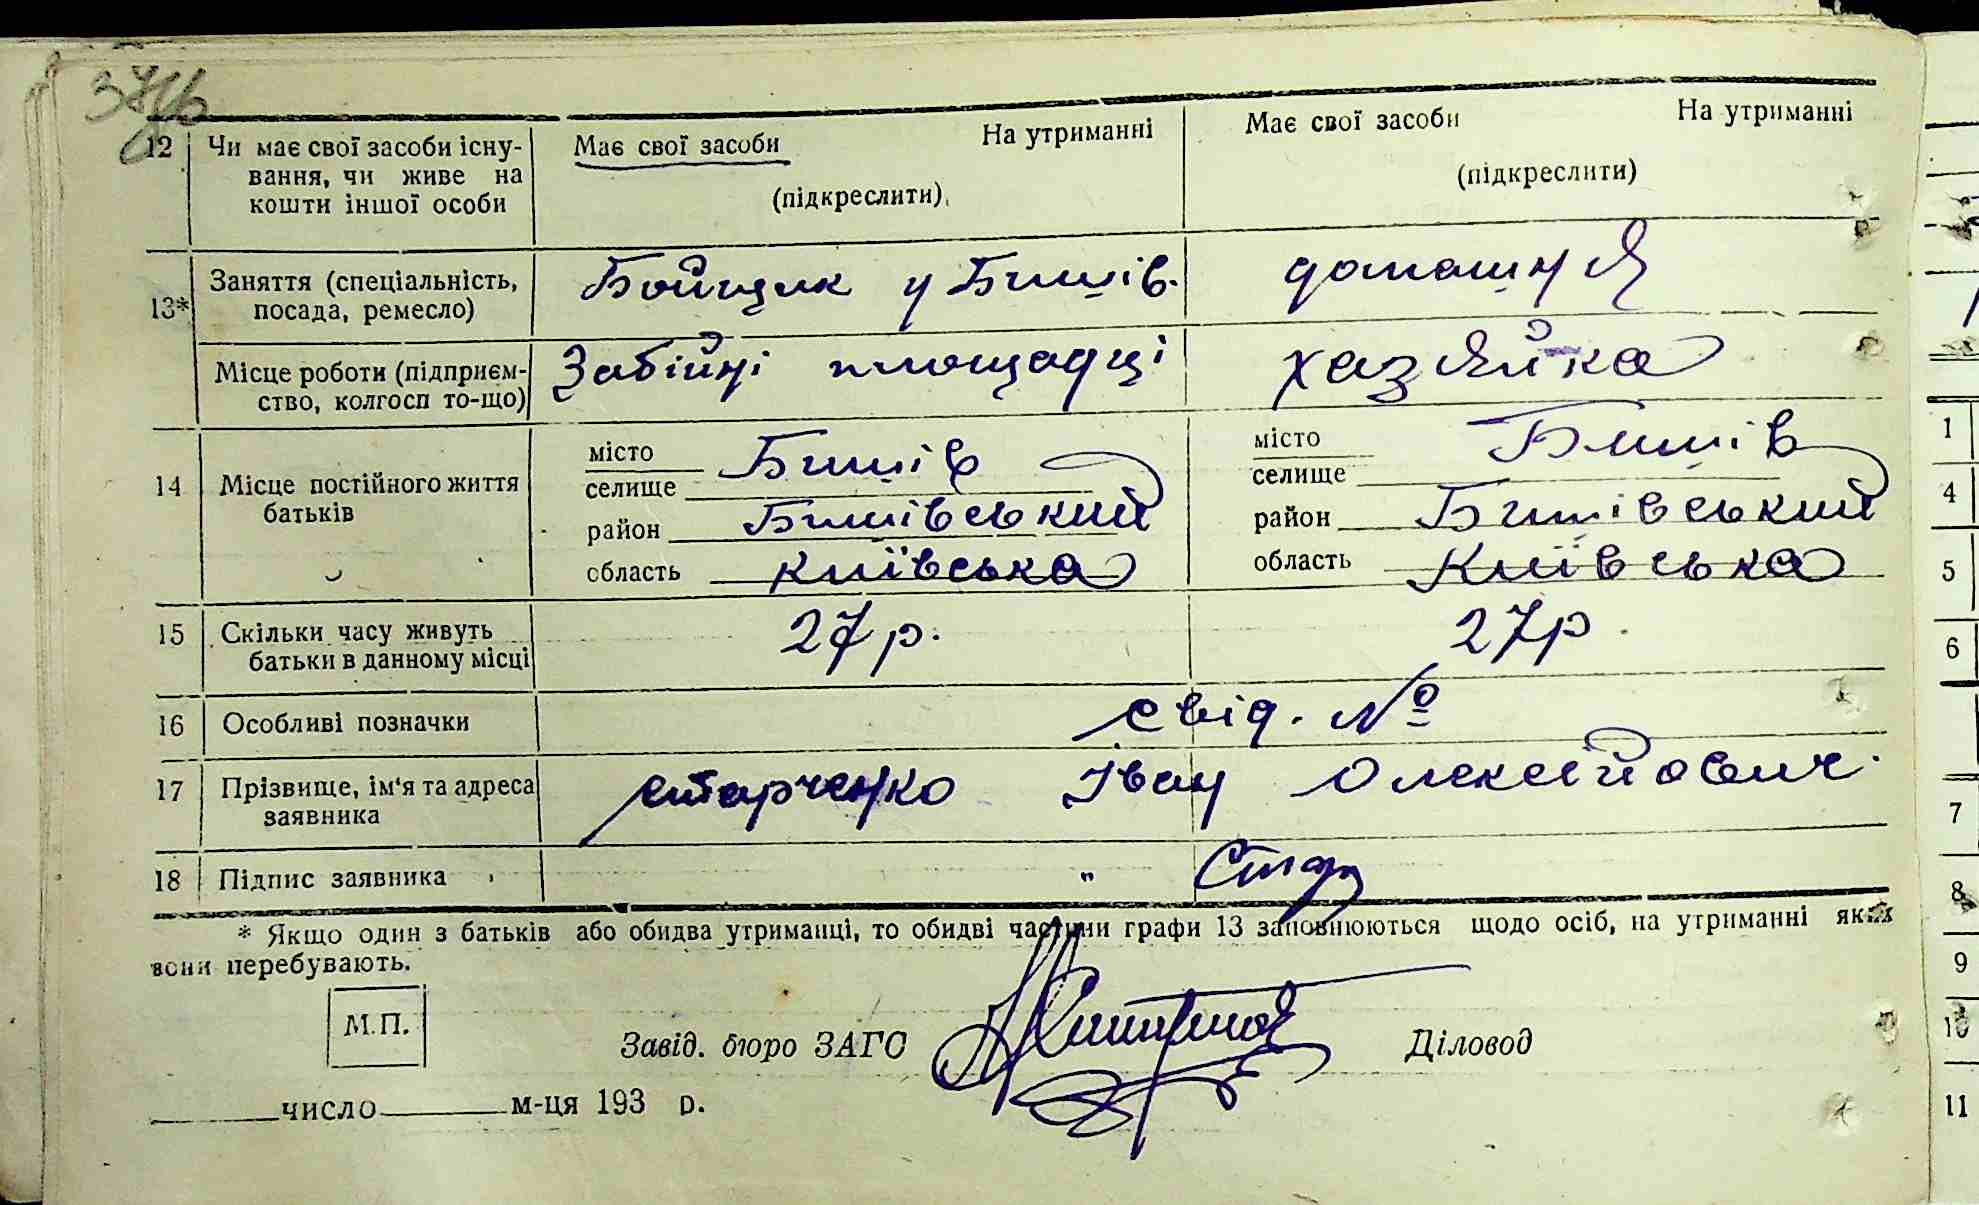 12 Чи має свої засоби існу-
вання, чи живе на
кошти іншої особи
Має свої засоби На утриманні
(підкреслити)
Має свої засоби На утриманні
(підкреслити)
13* Заняття (спеціальність,
посада, ремесло)
Бойщик у Бишів.
домашня
Місце роботи (підприєм-
ство, колгосп то-що)
Забійні площадці
хазяйка
14 Місце постійного життя
батьків
місто
селище Бишів
район Бишівський
область Київська
місто
селище Бишів
район Бишівський
область Київська
15 Скільки часу живуть
батьки в данному місці
27 р.
27 р.
16 Особливі позначки
свід. №
17 Прізвище, ім'я та адреса
заявника
Старченко Іван Олексійович.
18 Підпис заявника
" Стар
* Якщо один з батьків або обидва утриманці, то обидві частини графи 13 заповнюються щодо осіб, на утриманні яких
вони перебувають.
М.П.
Завід. бюро ЗАГС Діловод
число м-ця 193 р.
1
4
5
6
7
8
9
10
11